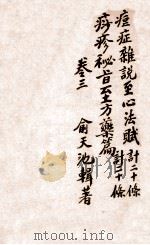 痘症雜說至心法賦 計二十條
痧疹秘旨至方藥篇 計三十條
卷三 俞天池輯著
mtoou.info
mtoou.info